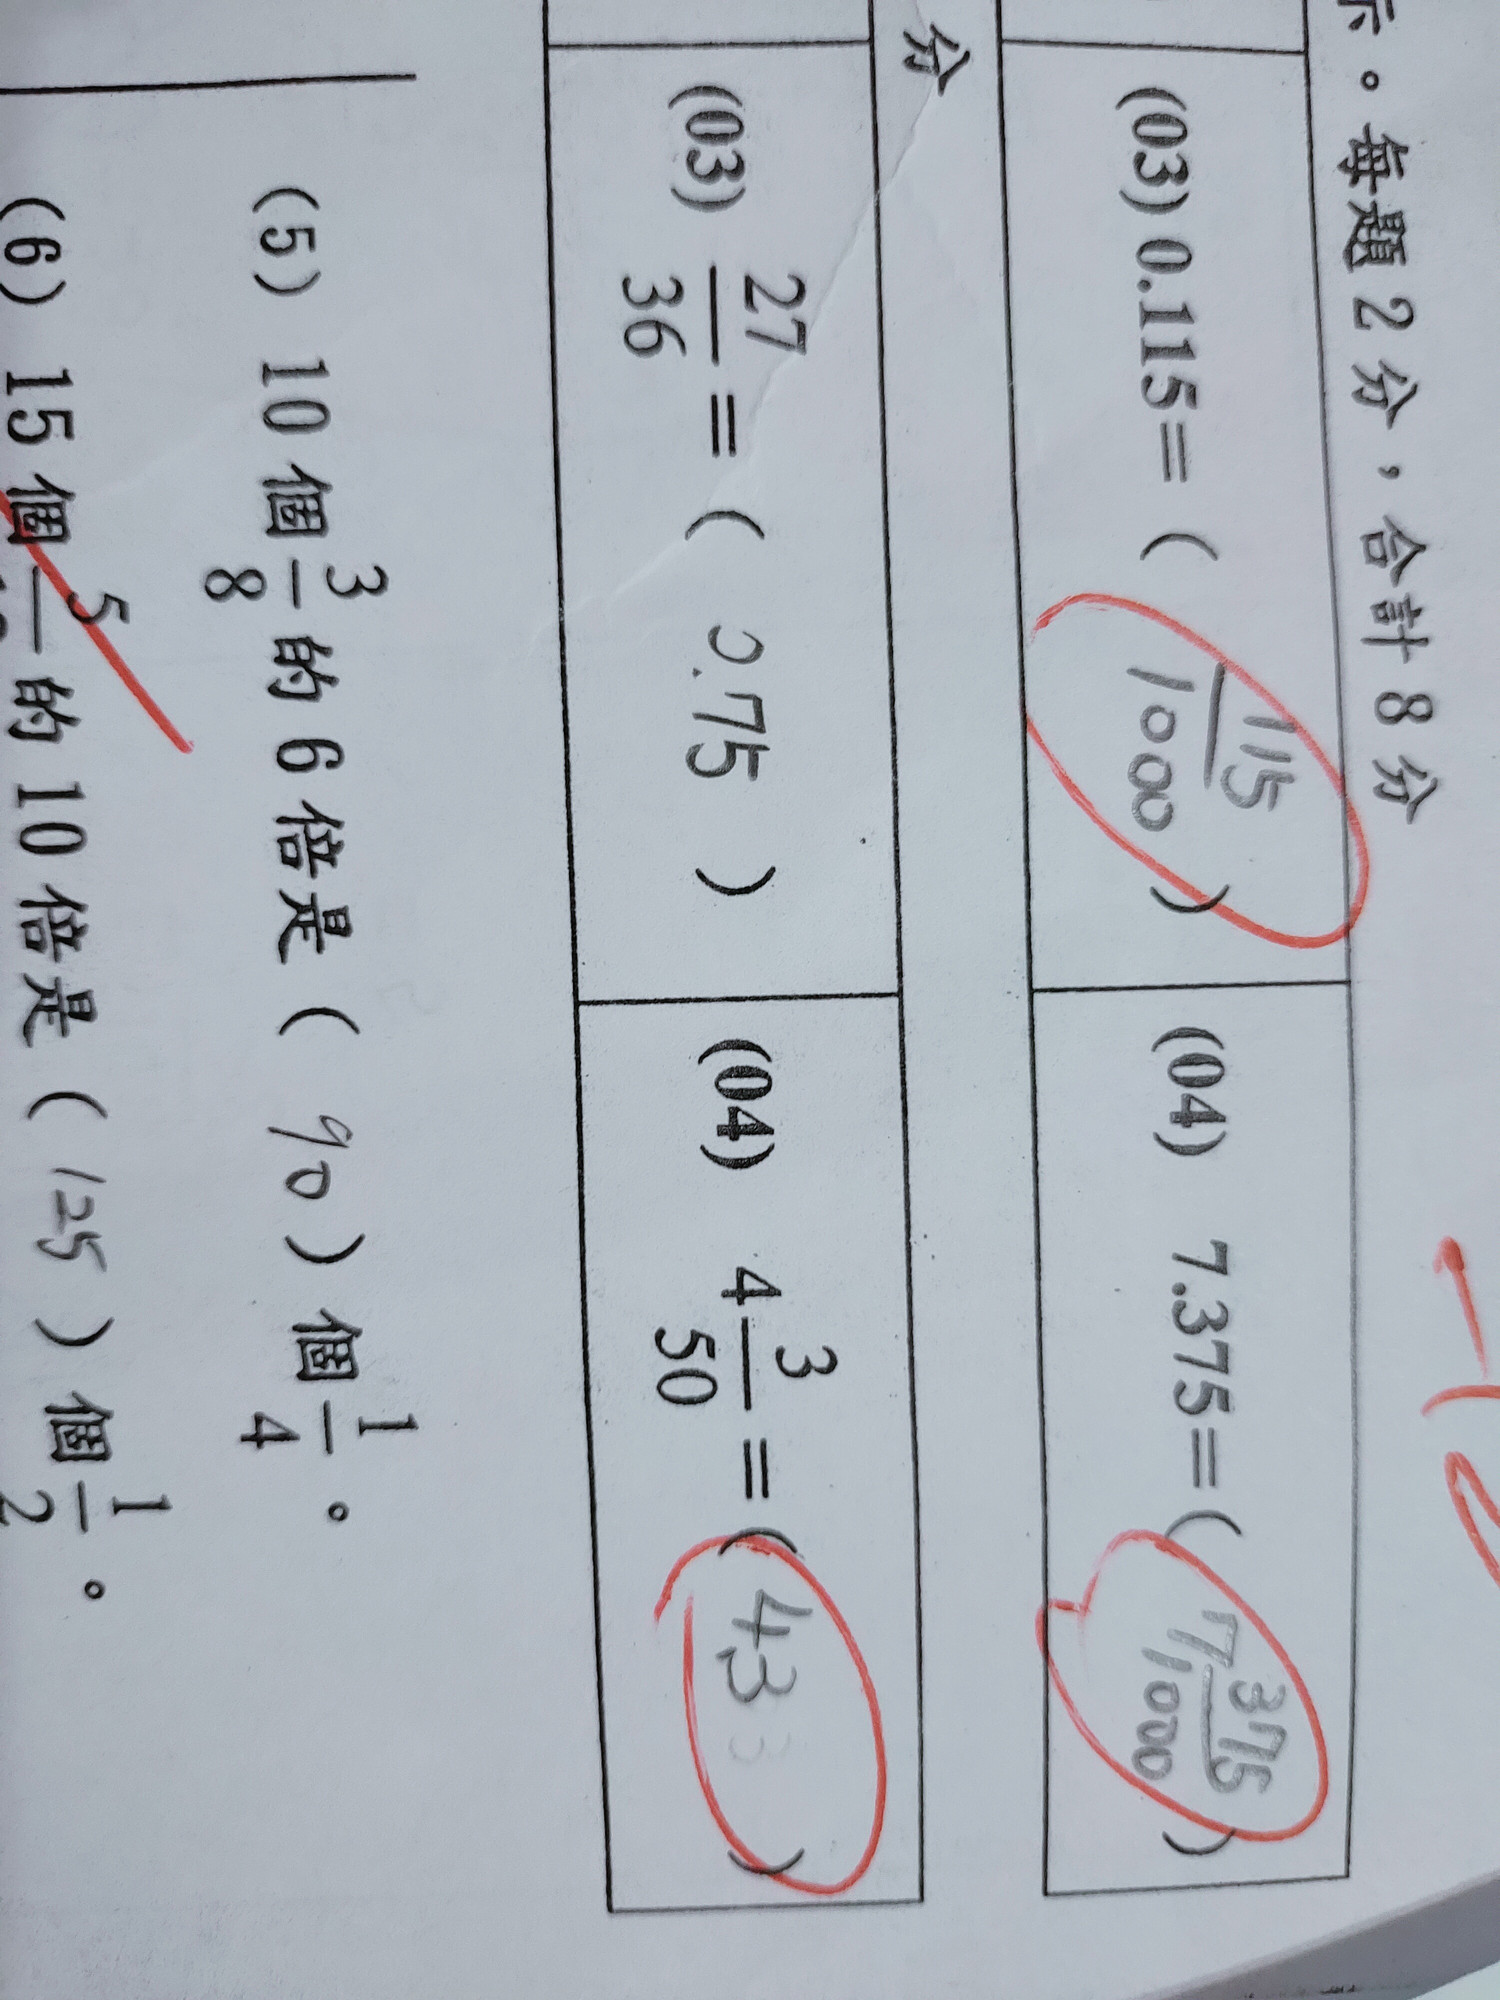 示。每題2分，合計8分
(03) 0.115=( 115/1000 )
(04) 7.375=( 7 375/1000 )
分
(03) 27/36 =( 0.75 )
(04) 4 3/50 =( 4.3 )
(5) 10個3/8的6倍是( 90 )個1/4。
(6) 15個5/的10倍是( 125 )個1/2。